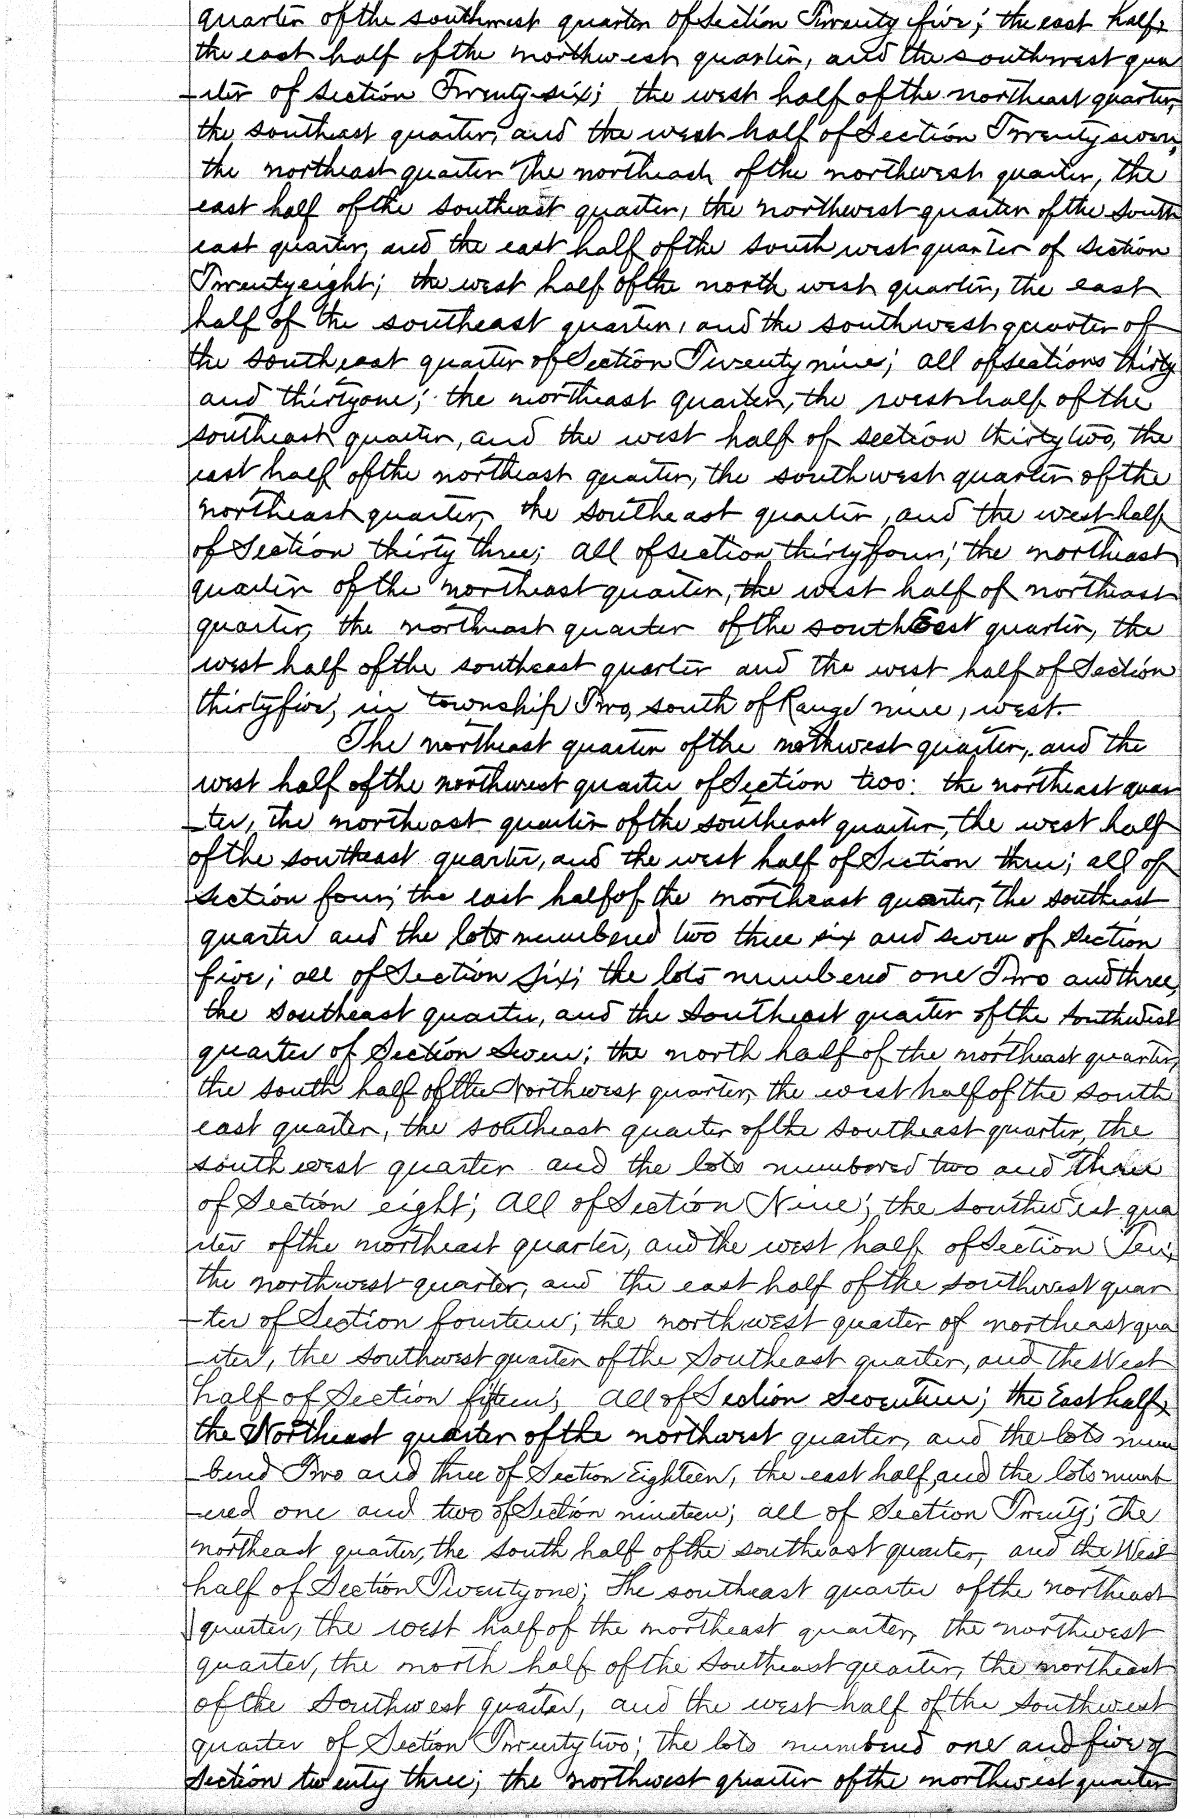 quarter of the southwest quarter of Section Twenty five; the east half,
the east half of the northwest quarter, and the southwest qua
-rter of section Twenty-six; the west half of the northeast quarter,
the southeast quarter, and the west half of Section Twenty seven,
the northeast quarter the northeast of the northwest quarter, the
east half of the southeast quarter, the northwest quarter of the south
east quarter, and the east half of the south west quarter of section
Twenty eight; the west half of the north west quarter, the east
half of the southeast quarter, and the southwest quarter of
the southeast quarter of Section Twenty nine; all of sections thirty
and thirtyone; the northeast quarter, the west half of the
southeast quarter, and the west half of section thirty two, the
east half of the northeast quarter, the southwest quarter of the
northeast quarter, the southeast quarter, and the west half
of Section thirty three; all of section thirty four; the northeast
quarter of the northeast quarter, the west half of northeast
quarter, the northeast quarter of the southEast quarter, the
west half of the southeast quarter and the west half of Section
thirty five, in township Two, south of Range nine, west.
The northeast quarter of the nothwest quarter, and the
west half of the northwest quarter of Section two: the northeast quar
-ter, the northeast quarter of the southeast quarter, the west half
of the southeast quarter, and the west half of Section three; all of
section four; the east half of the northeast quarter, the southeast
quarter and the lots numbered two three six and seven of section
five; all of Section Six; the lots numbered one Two and three,
the southeast quarter, and the southeast quarter of the southwest
quarter of Section Seven; the north half of the northeast quarter,
the south half of the Northwest quarter, the west half of the south
east quarter, the southeast quarter of the southeast quarter, the
south west quarter and the lots numbered two and three
of Section eight; all of Section Nine; the southwest qua
rter of the northeast quarter, and the west half of Section Ten;
the northwest quarter, and the east half of the southwest quar
-ter of Section fourteen; the northwest quarter of northeast qua
-rter, the southwest quarter of the Southeast quarter, and the West
half of Section fifteen; all of Section Seventeen; the East half,
the Northeast quarter of the northwest quarter, and the lots num
-bered Two and three of Section Eighteen, the east half, and the lots numb
-ered one and two of Section nineteen; all of Section Twenty; the
northeast quarter, the south half of the southeast quarter, and the West
half of Section Twenty one; the southeast quarter of the northeast
quarter, the west half of the northeast quarter, the northwest
quarter, the north half of the southeast quarter, the northeast
of the Southwest quarter, and the west half of the southwest
quarter of Section Twenty two; the lots numbered one and five of
Section twenty three; the northwest quarter of the northwest quarter